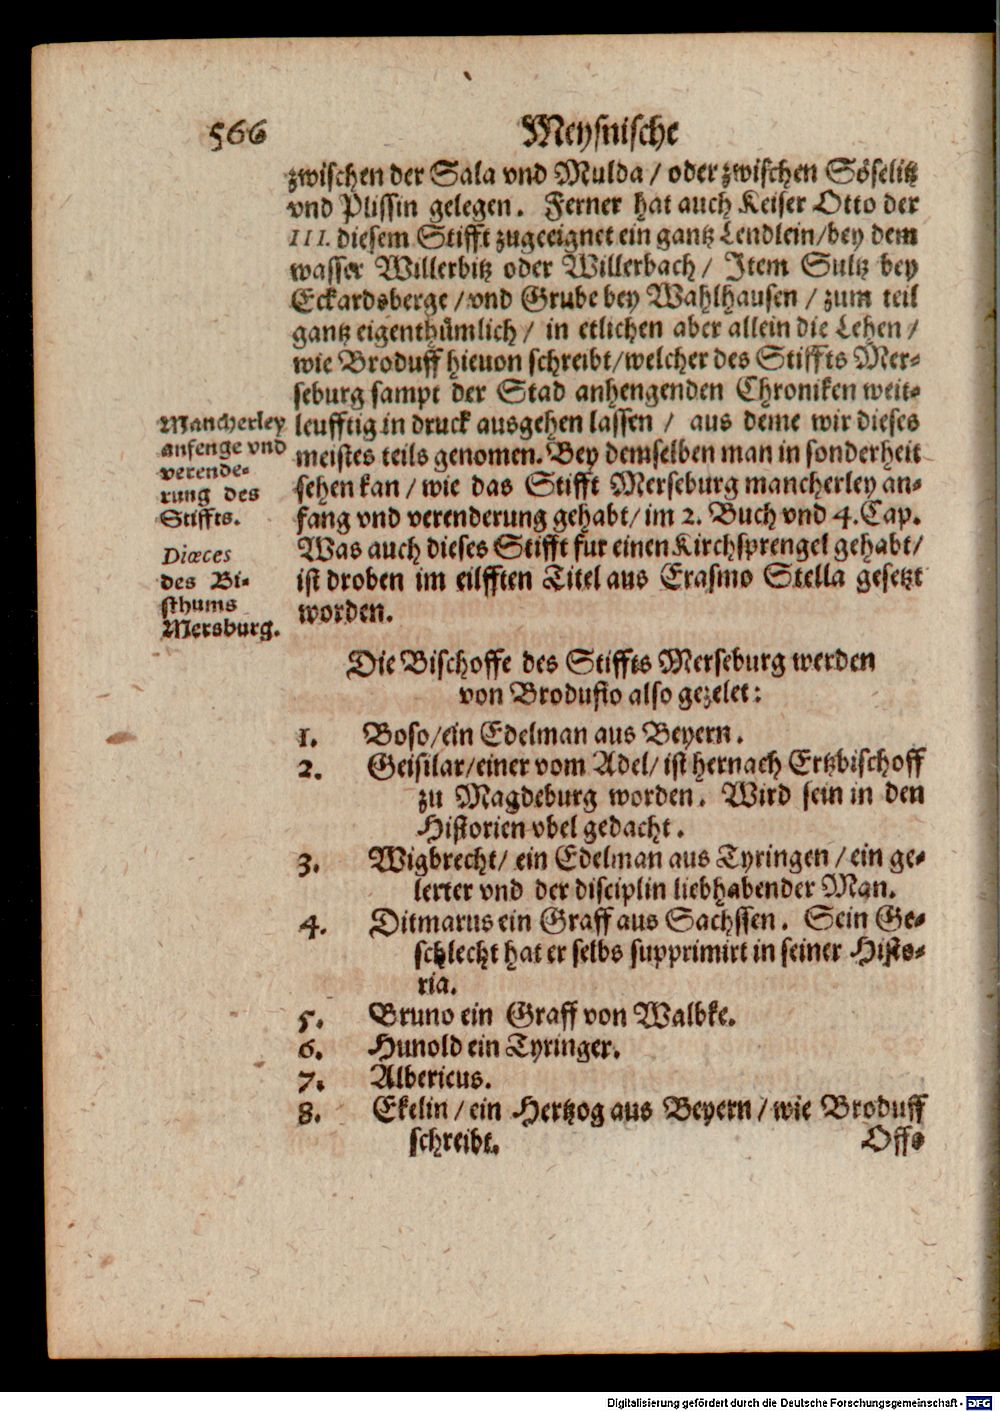 566
Meysnische
zwischen der Sala vnd Mulda / oder zwischen Söselitz
vnd Plissin gelegen. Ferner hat auch Keiser Otto der
III. diesem Stifft zugeeignet ein gantz Lendlein/bey dem
wasser Willerbitz oder Willerbach/ Item Sultz bey
Eckardsberge /vnd Grube bey Wahlhausen / zum teil
gantz eigenthümlich / in etlichen aber allein die Lehen /
wie Broduff hieuon schreibt/welcher des Stiffts Mer-
seburg sampt der Stad anhengenden Chroniken weit-
leufftig in druck ausgehen lassen / aus deme wir dieses
meistes teils genomen. Bey demselben man in sonderheit
sehen kan / wie das Stifft Merseburg mancherley an-
fang vnd verenderung gehabt/ im 2. Buch vnd 4. Cap.
Was auch dieses Stifft fur einen Kirchsprengel gehabt/
ist droben im eilfften Titel aus Erasmo Stella gesetzt
worden.
Mancherley
anfenge vnd
verende-
rung des
Stiffts.
Diœces
des Bi-
sthums
Mersburg.
Die Bischoffe des Stiffts Merseburg werden
von Brodufio also gezelet:
1. Boso/ein Edelman aus Beyern.
2. Geisilar/einer vom Adel/ ist hernach Ertzbischoff
zu Magdeburg worden. Wird sein in den
Historien vbel gedacht.
3. Wigbrecht/ ein Edelman aus Tyringen / ein ge-
lerter vnd der disciplin liebhabender Man.
4. Ditmarus ein Graff aus Sachssen. Sein Ge-
schlecht hat er selbs supprimirt in seiner Histo-
ria.
5. Bruno ein Graff von Walbke.
6. Hunold ein Tyringer.
7. Albericus.
8. Ekelin / ein Hertzog aus Beyern / wie Broduff
schreibt.
Off-
Digitalisierung gefördert durch die Deutsche Forschungsgemeinschaft - DFG